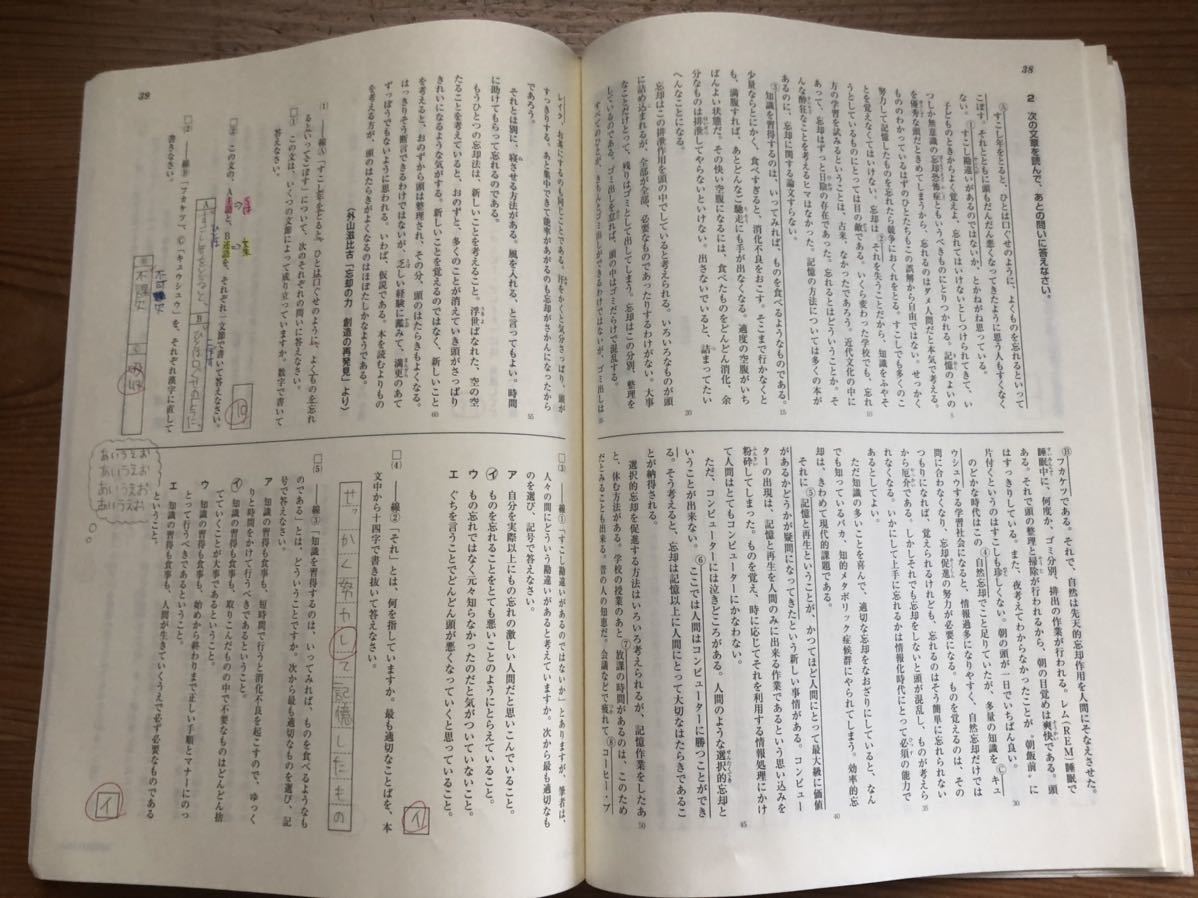 38
2 次の文章を読んで、あとの問いに答えなさい。
Ⓐすこし年をとると、ひとは口ぐせのように、よくものを忘れるといって
こぼす。それとともに頭もだんだん悪くなってきたように思う人もすくなく
ない。①すこし勘違いがあるのではないか、とかねがね思っている。
子どものときからよく覚えよ、忘れてはいけないとしつけられてきて、い
つしか無意識の忘却恐怖症ともいうべきものにとりつかれる。記憶のよいの
を優秀な頭だときめてしまうから、忘れるのはダメ人間だと本気で考える。
もののわかっているはずのひとたちもこの誤解から自由ではない。せっかく
努力して記憶したものを忘れたら競争におくれをとる。すこしでも多くのこ
とを覚えなくてはいけない。忘却は②それを失うことだから、知識をふやそ
うとしているものにとっては目の敵である。いくら変わった学校でも、忘れ
方の学習を試みるということは、古来、なかったであろう。近代文化の中に
あって、忘却はずっと日陰の存在であった。忘れるとはどういうことか。そ
んな酔狂なことを考えるヒマはなかった。記憶の方法については多くの本が
あるのに、忘却に関する論文すらない。
③知識を習得するのは、いってみれば、ものを食べるようなものである。
少量ならとにかく、食べすぎると、消化不良をおこす。そこまで行かなくと
も、満腹すれば、あとどんなご馳走にも手が出なくなる。適度の空腹がいち
ばんよい状態だ。その快い空腹になるには、食べたものをどんどん消化、余
分なものは排泄してやらないといけない。出さないでいると、詰まってたい
へんなことになる。
忘却はこの排泄作用を頭の中でしていると考えられる。いろいろなものが頭
に詰め込まれるが、全部が全部、必要なものであったりするわけがない。大事
なことだけとって、残りはゴミとして出してしまう。忘却はこの分別、整理を
しているのである。ゴミ出しを怠れば、頭の中はゴミだらけで混乱する。
Ⓑフカケツである。それで、自然は先天的忘却作用を人間にそなえさせた。
睡眠中に、何度か、ゴミ分別、排出の作業が行われる。レム(REM)睡眠で
ある。それで頭の整理と掃除が行われるから、朝の目覚めは爽快である。頭
はすっきりしている。また、夜考えてわからなかったことが〝朝飯前〟に
片付くというのはすこしも珍しくない。朝の頭が一日でいちばん良い。
のどかな時代はこの④自然忘却でこと足りていたが、多量の知識をⒸキュ
ウシュウする学習社会になると、情報過多になりやすく、自然忘却だけでは
間に合わなくなり、忘却促進の努力が必要になる。ものを覚えるのは、その
つもりになれば、覚えられるけれども、忘れるのはそう簡単に忘れられない
から厄介である。しかしそれでも忘却をしないと頭が混乱し、ものが考えら
れなくなる。いかにして上手に忘れるかは情報化時代にとって必須の能力で
あるとしてよい。
ただ知識の多いことを喜んで、適切な忘却をなおざりにしていると、なん
でも知っているバカ、知的メタボリック症候群にやられてしまう。効率的忘
却は、きわめて現代的課題である。
それに⑤記憶と再生ということが、かつてほど人間にとって最大級に価値
があるかどうかが疑問になってきたという新しい事情がある。コンピュー
ターの出現は、記憶と再生を人間のみに出来る作業であるという思い込みを
粉砕してしまった。ものを覚え、時に応じてそれを利用する情報処理にかけ
て人間はとてもコンピューターにかなわない。
ただ、コンピューターには泣きどころがある。人間のような選択的忘却と
いうことが出来ない。⑥ここでは人間はコンピューターに勝つことができ
る。そう考えると、忘却は記憶以上に人間にとって大切なはたらきであるこ
とが納得される。
選択的忘却を促進する方法はいろいろ考えられるが、記憶作業をしたあ
と、休む方法がある。学校の授業のあと⑦放課の時間があるのは、このため
だとみることも出来る。昔の人の知恵だ。会議などで疲れて⑧コーヒー・ブ
39
すっきりする。あと集中できて能率があがるのも忘却がさかんになったから
であろう。
それとは別に、寝させる方法がある。風を入れる、と言ってもよい。時間
に助けてもらって忘れるのである。
もうひとつの忘却法は、新しいことを考えること。浮世ばなれた、空の空
たることを考えていると、おのずと、多くのことが消えていき頭がさっぱり
きれいになるような気がする。新しいことを覚えるのではなく、新しいこと
を考えると、おのずから頭は整理され、その分、頭のはたらきもよくなる。
はっきりそう断言できるわけではないが、乏しい経験に鑑みて、満更のあて
ずっぽうでもないように思われる。いわば、仮説である。本を読むよりもの
を考える方が、頭のはたらきがよくなるのはほぼたしかなようである。
(外山滋比古「忘却の力 創造の再発見」より)
(1) ――線Ⓐ「すこし年をとると、ひとは口ぐせのように、よくものを忘れ
るといってこぼす」について、次のそれぞれの問いに答えなさい。
□① この文は、いくつの文節によって成り立っていますか。数字で書いて
答えなさい。
10
□② この文の、A主語と、B述語を、それぞれ一文節で書いて答えなさい。
ひとは
こぼす
□(2) ――線Ⓑ「フカケツ」、Ⓒ「キュウシュウ」を、それぞれ漢字に直して
書きなさい。
□(3) ――線①「すこし勘違いがあるのではないか」とありますが、筆者は、
人々の間にどういう勘違いがあると考えていますか。次から最も適切なも
のを選び、記号で答えなさい。
ア 自分を実際以上にもの忘れの激しい人間だと思いこんでいること。
イ ものを忘れることをとても悪いことのようにとらえていること。
ウ もの忘れではなく元々知らなかったのだと気がついていないこと。
エ ぐちを言うことでどんどん頭が悪くなっていくと思っていること。
イ
□(4) ――線②「それ」とは、何を指していますか。最も適切なことばを、本
文中から十四字で書き抜いて答えなさい。
せっかく努力して記憶したもの
□(5) ――線③「知識を習得するのは、いってみれば、ものを食べるようなも
のである」とは、どういうことですか。次から最も適切なものを選び、記
号で答えなさい。
ア 知識の習得も食事も、短時間で行うと消化不良を起こすので、ゆっく
りと時間をかけて行うべきであるということ。
イ 知識の習得も食事も、取りこんだものの中で不要なものはどんどん捨
てていくことが大事であるということ。
ウ 知識の習得も食事も、始めから終わりまで正しい手順とマナーにのっ
とって行うべきであるということ。
エ 知識の習得も食事も、人間が生きていくうえで必ず必要なものである
ということ。
イ
あいうえお
あいうえお
あいうえお
あいうえお